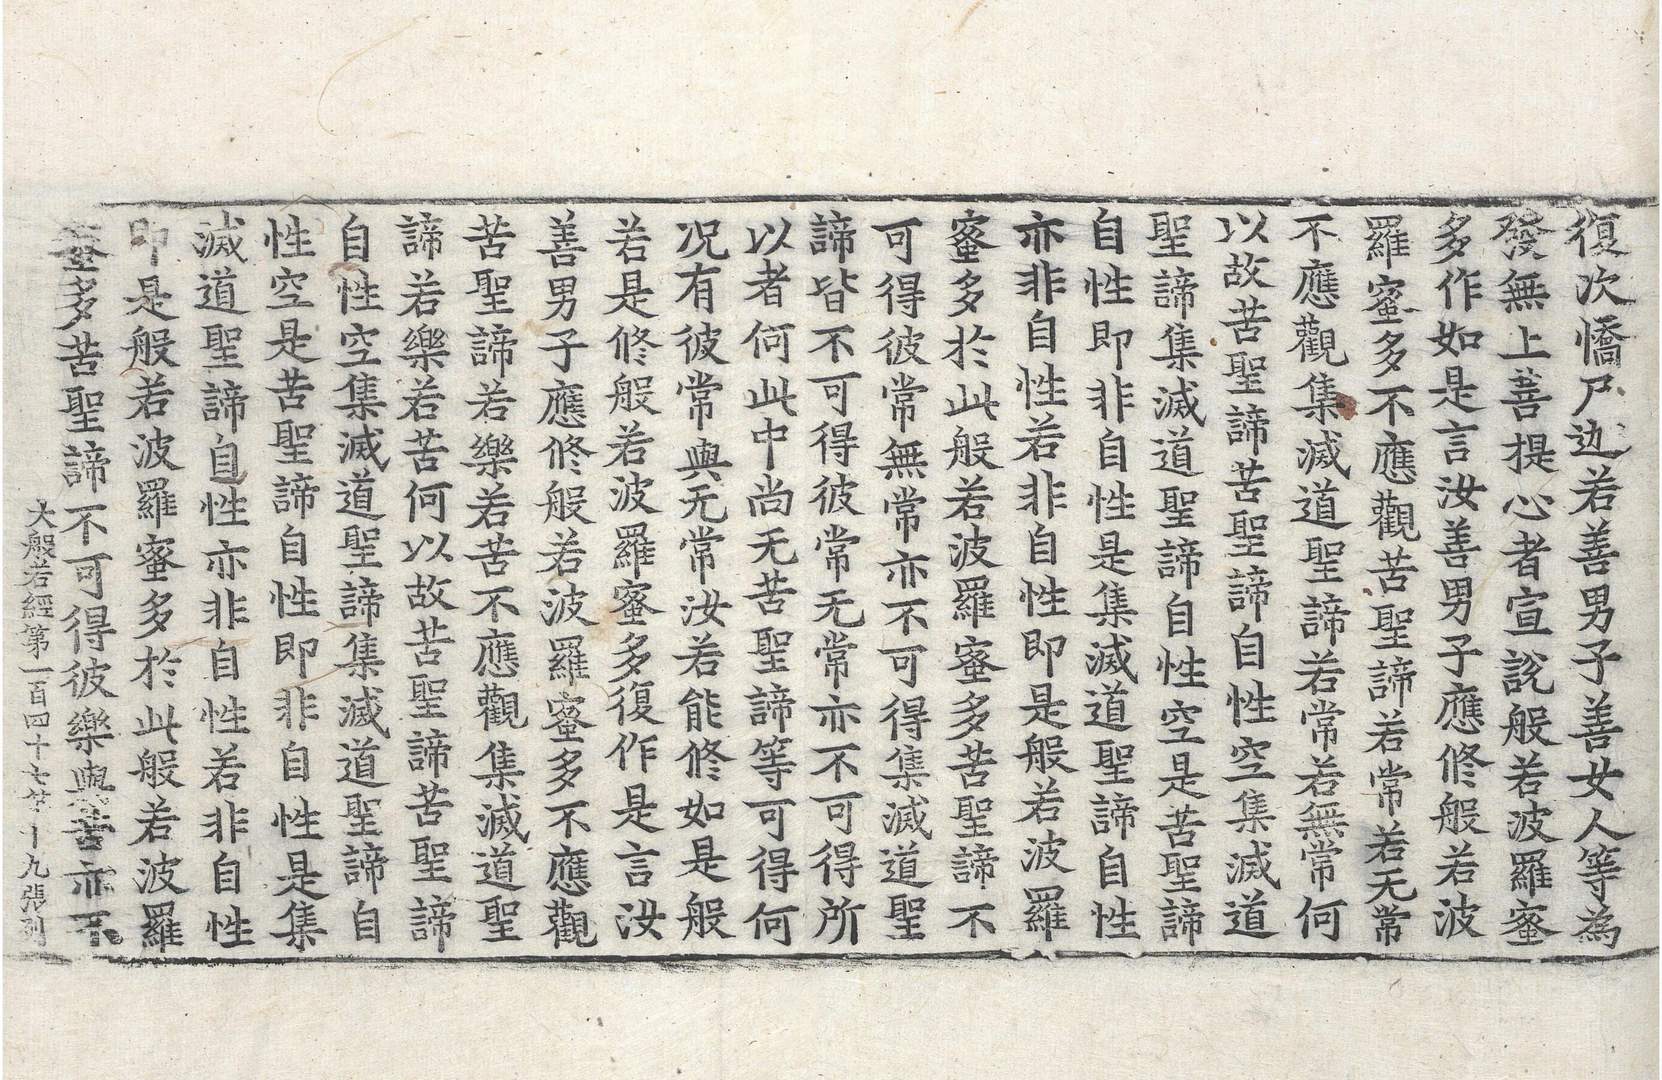 復次憍尸迦若善男子善女人等為
發無上菩提心者宣說般若波羅蜜
多作如是言汝善男子應修般若波
羅蜜多不應觀苦聖諦若常若无常
不應觀集滅道聖諦若常若無常何
以故苦聖諦苦聖諦自性空集滅道
聖諦集滅道聖諦自性空是苦聖諦
自性即非自性是集滅道聖諦自性
亦非自性若非自性即是般若波羅
蜜多於此般若波羅蜜多苦聖諦不
可得彼常無常亦不可得集滅道聖
諦皆不可得彼常无常亦不可得所
以者何此中尚无苦聖諦等可得何
况有彼常與无常汝若能修如是般
若是修般若波羅蜜多復作是言汝
善男子應修般若波羅蜜多不應觀
苦聖諦若樂若苦不應觀集滅道聖
諦若樂若苦何以故苦聖諦苦聖諦
自性空集滅道聖諦集滅道聖諦自
性空是苦聖諦自性即非自性是集
滅道聖諦自性亦非自性若非自性
即是般若波羅蜜多於此般若波羅
蜜多苦聖諦不可得彼樂與苦亦不
大般若經第一百四十七 十九張 列